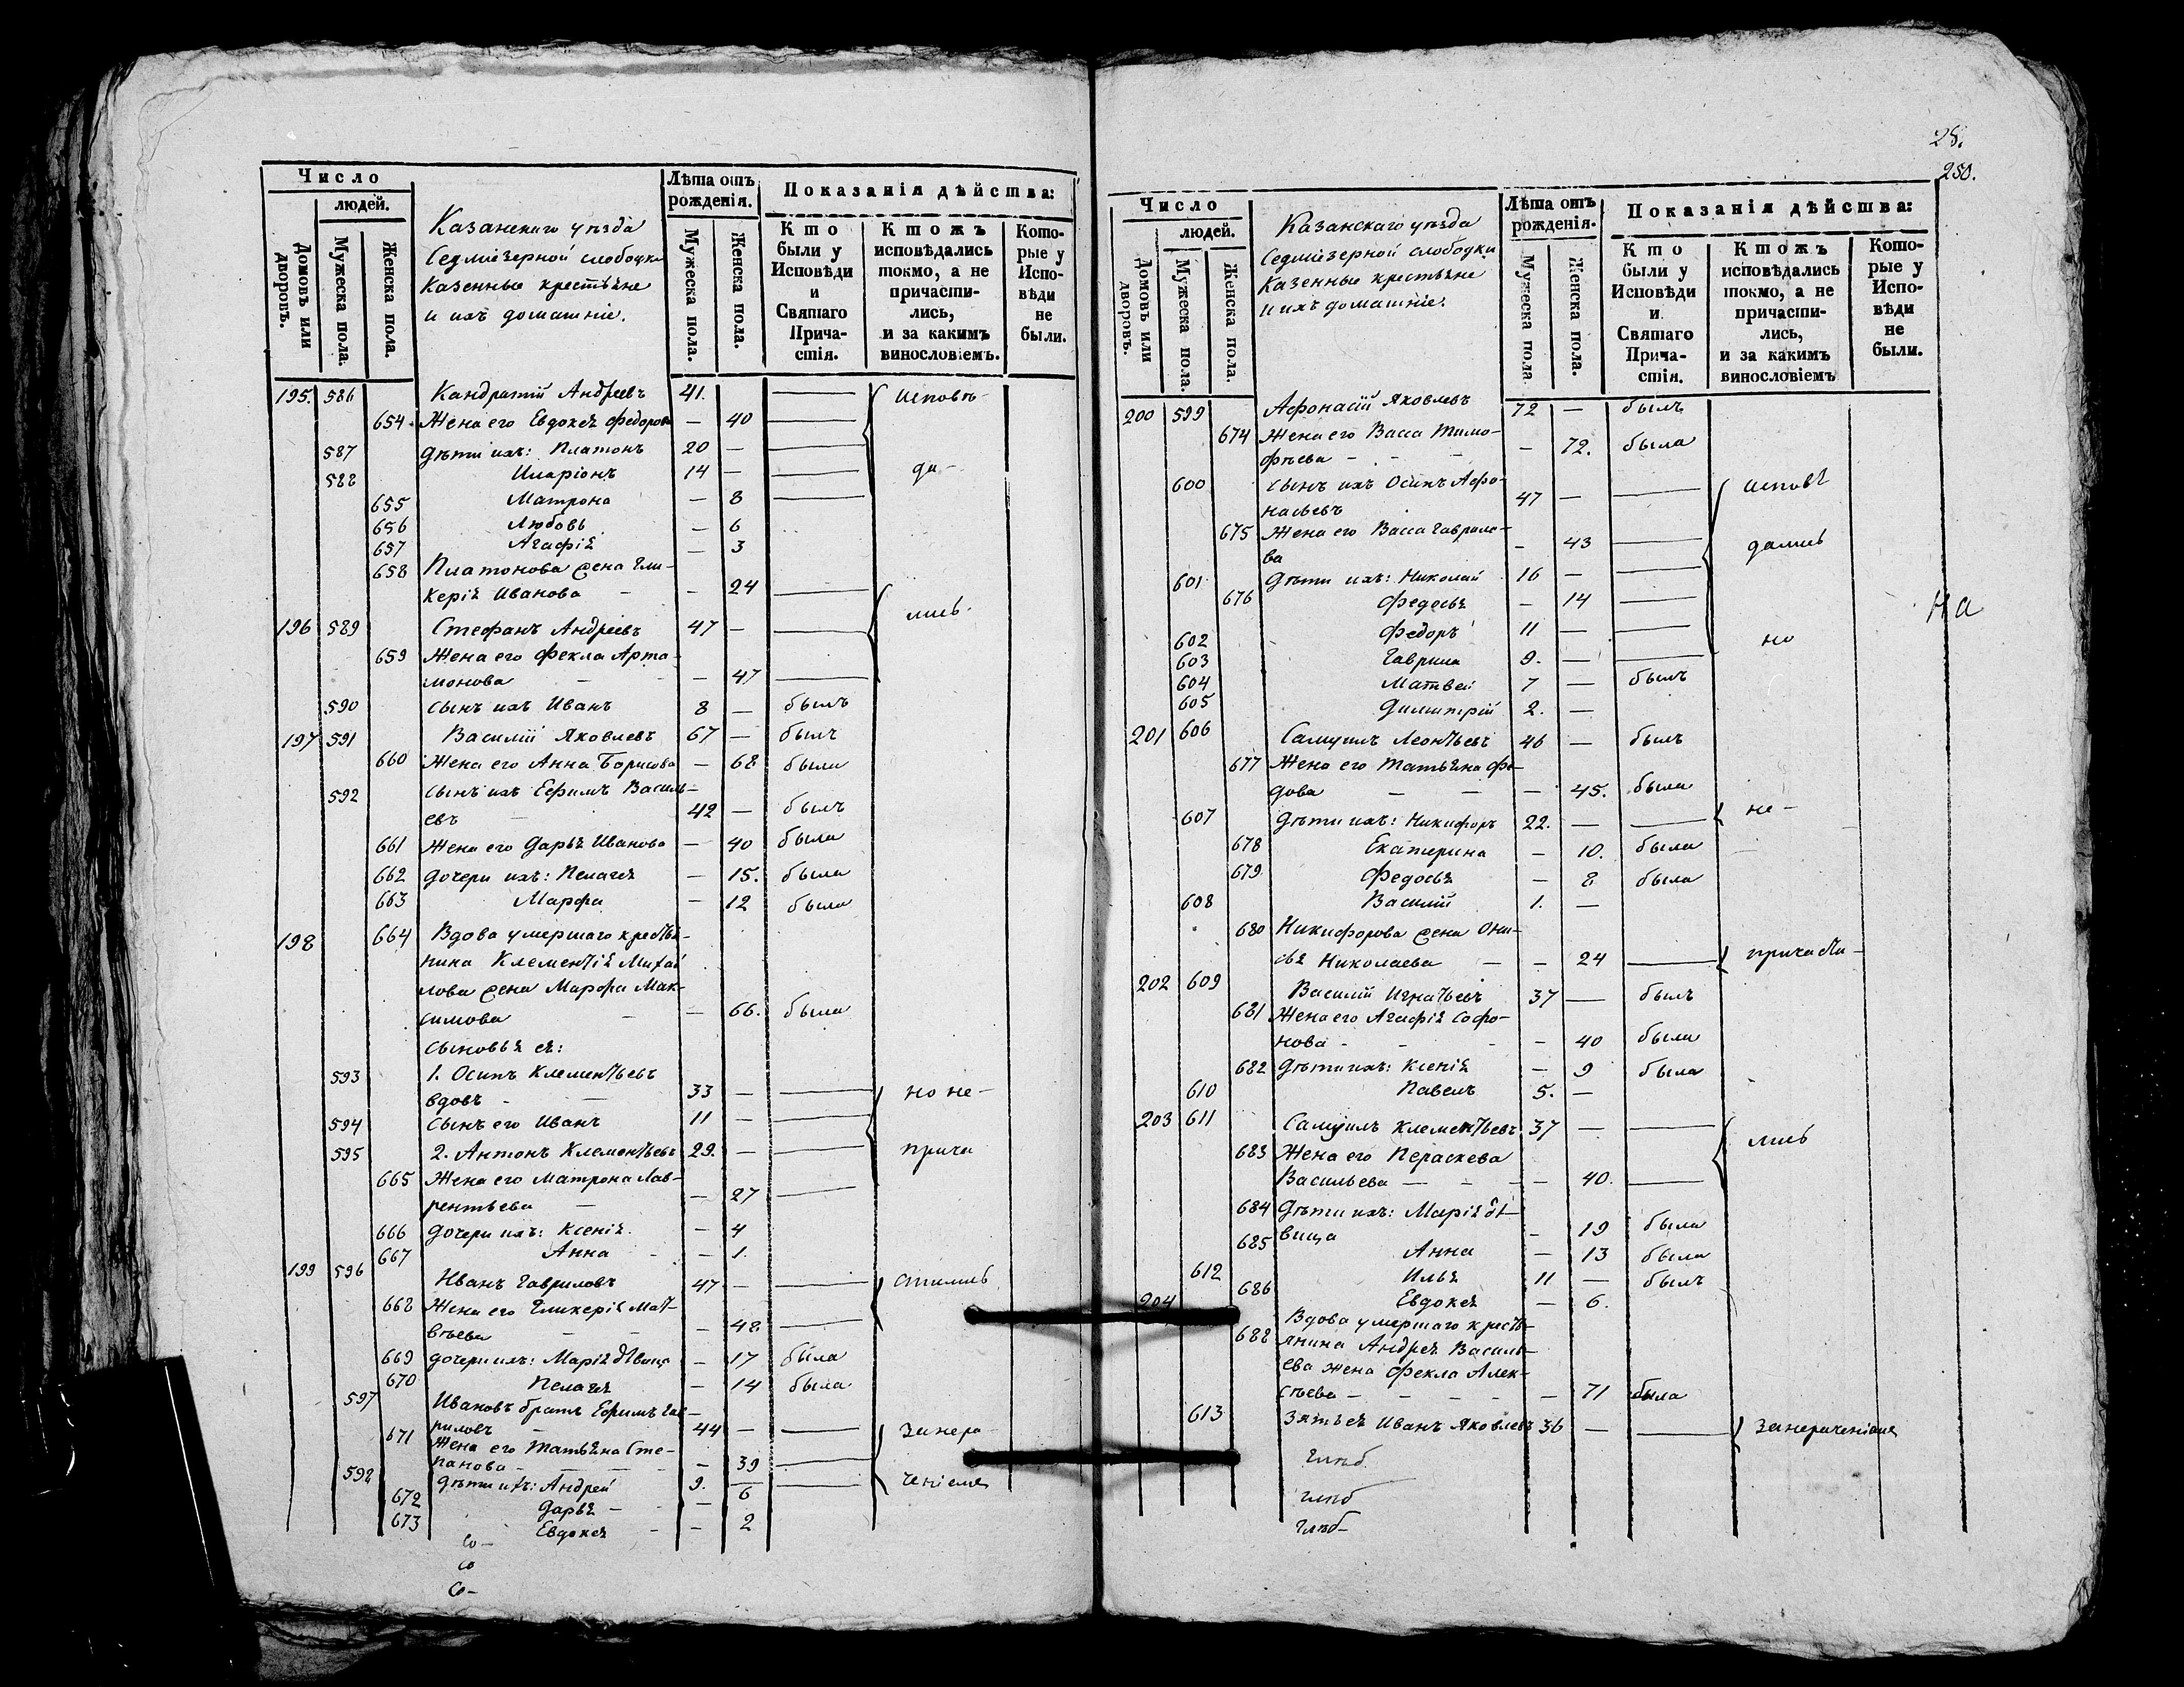 Число
людей.
Домовъ или дворовъ.
Мужеска пола.
Женска пола.
Казанскаго уѣзда
Седміезерной слободки
Казенные крестьяне
и ихъ домашніе.
Лѣта отъ рожденія.
Мужеска пола.
Женска пола.
Показанія дѣйства:
Кто были у Исповѣди и Святаго Прича-стія.
Ктожъ исповѣдались токмо, а не причасти-лись, и за какимъ винословіемъ.
Кото-рые у Испо-вѣди не были.
195. 586 Кандратій Андреевъ 41. — Исповѣ-
654 Жена его Евдокея Федорова — 40 —
587 Дѣти ихъ: Платонъ 20 — —
588 Иларіонъ 14 — — да-
655 Матрона — 8 —
656 Любовь — 6
657 Агафія — 3
658 Платонова жена Гли-
керія Иванова — — 24 —
196 589 Стефанъ Андреевъ 47 — — лись.
659 Жена его Фекла Арта-
монова — — 47 —
590 сынъ ихъ Иванъ 8 — былъ
197 591 Василій Яковлевъ 67 — былъ
660 Жена его Анна Борисова — 68 была
592 сынъ ихъ Ефимъ Василь-
евъ — 42 — былъ
661 Жена его Дарья Иванова — 40 была
662 Дочери ихъ: Пелагея — 15. была
663 Марфа — 12 была
198 664 Вдова умершаго крестья-
нина Клементія Михай
лова жена Марфа Мак-
симова — — 66. была
сыновья ея:
593 1. Осипъ Клементьевъ
вдовъ — — 33 — — но не-
594 сынъ его Иванъ 11 — —
595 2. Антонъ Клементьевъ 29. — — прича
665 Жена его Матрона Лав-
рентьева — — 27 —
666 Дочери ихъ: Ксенія. — 4
667 Анна — — 1.
199 596 Иванъ Гавриловъ 47 — — стились
668 Жена его Гликерія Мат-
вѣева — — — 48 —
669 дочери ихъ: Марія дѣвица — 17 была
670 Пелагея — 14 была
597 Ивановъ братъ Ефимъ Гав-
риловъ — 44 — — За нера-
671 Жена его Татьяна Сте-
панова — — 39 —
598 дѣти ихъ: Андрей 9. — — ченіемъ
672 Дарья — — 6
673 Евдокея — — 2
Со-
Со
Со-
28.
250.
Число
людей.
Домовъ или дворовъ.
Мужеска пола.
Женска пола.
Казанскаго уѣзда
Седміезерной слободки
Казенные крестьяне
и ихъ домашніе.
Лѣта отъ рожденія.
Мужеска пола
Женска пола.
Показанія дѣйства:
Кто были у Исповѣди и. Святаго Прича-стія.
Ктожъ исповѣдались токмо, а не причасти-лись, и за какимъ винословіемъ
Кото-рые у Испо-вѣди не были.
200 599 Афонасій Яковлевъ 72 — былъ
674 Жена его Васса Тимо-
фѣева — — — 72. была
600 сынъ ихъ Осипъ Афо-
насьевъ 47 — — исповѣ
675 Жена его Васса Гаврило-
ва — 43 — дались
601 Дѣти ихъ: Николай 16 — —
676 Федосья — 14 —
На
602 Федоръ 11 — — но
603 Гаврила 9. — —
604 Матвей 7 — былъ
605 Димитрій 2. —
201 606 Самуилъ Леонтьевъ 46 — былъ
677 Жена его Татьяна Фе-
дова — — — 45. была
607 Дѣти ихъ: Никифоръ 22. — — не-
678 Екатерина — 10. была
679 Федосья — 8 была
608 Василій 1. —
680 Никифорова жена Они-
сья Николаева — — 24 — причасти-
202 609 Василій Игнатьевъ 37 — былъ
681 Жена его Агафія Софо-
нова — — — 40 была
682 Дѣти ихъ: Ксенія — 9 была
610 Павелъ 5. —
203 611 Самуилъ Клементьевъ 37 — — лись
683 Жена его Параскева
Васильева — — — 40. —
684 Дѣти ихъ: Марія дѣ-
вица — 19 была
685 Анна — 13 была
612 Илья 11 — былъ
686 Евдокея — 6.
204 Вдова умершаго кресть-
688 янина Андрея Василь-
ева жена Фекла Алек-
сѣева — — — — 71 была
613 Зять ея Иванъ Яковлевъ 36 — — За нераченіемъ
Глѣб
Глѣб
Глѣб-